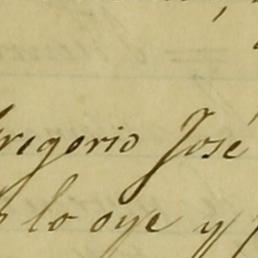 regorio José
lo oye y